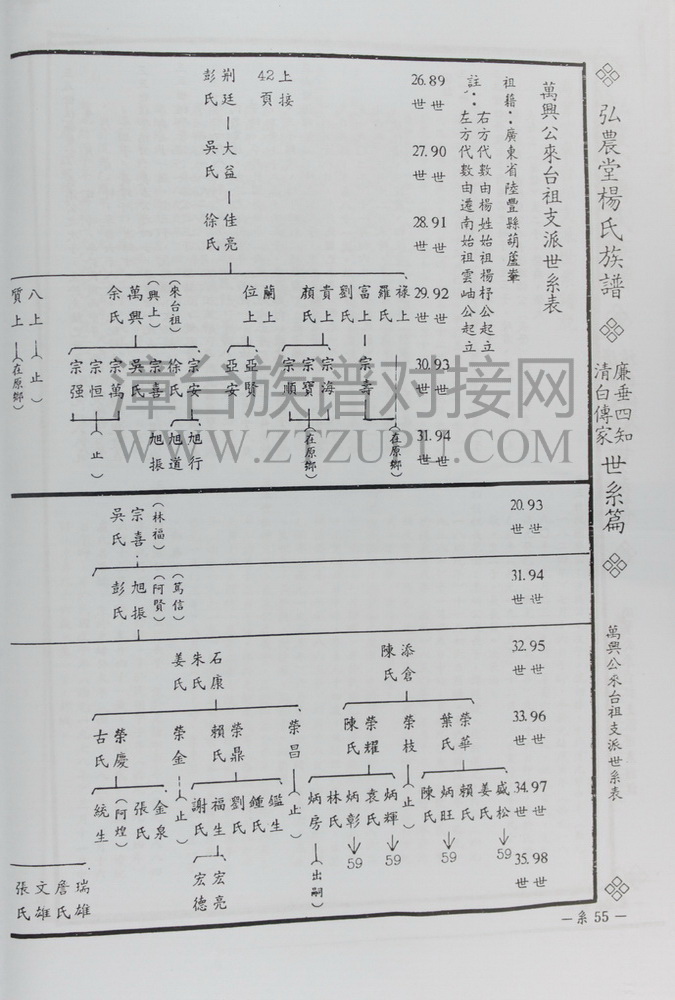 弘農堂楊氏族譜
廉垂四知
清白傳家
世系篇
萬興公來台祖支派世系表
萬興公來台祖支派世系表
祖籍：廣東省陸豐縣葫蘆峯
註：右方代數由楊姓始祖楊杼公起立
左方代數由遷南始祖雲岫公起立
26.89
世世
27.90
世世
28.91
世世
29.92
世世
30.93
世世
31.94
世世
上接
42頁
荆廷
彭氏
大益
吳氏
佳亮
徐氏
祿上
羅氏
富上
劉氏
貴上
顏氏
蘭上
位上
(來台祖)
(興上)
萬興
余氏
八上
(止)
質上
(在原鄉)
(在原鄉)
宗壽
宗海
宗寶
宗順
(在原鄉)
亞賢
亞安
宗安
徐氏
宗喜
吳氏
宗萬
宗恒
宗强
(止)
旭行
旭道
旭振
漳台族谱对接网
WWW.ZTZUPU.COM
20.93
世世
31.94
世世
32.95
世世
33.96
世世
34.97
世世
35.98
世世
(林福)
宗喜
吳氏
(篤信)
(阿賢)
旭振
彭氏
添倉
陳氏
石康
朱氏
姜氏
榮華
葉氏
榮枝
榮耀
陳氏
榮昌
榮鼎
賴氏
榮金
榮慶
古氏
盛松
姜氏
賴氏
炳旺
陳氏
(止)
炳輝
袁氏
炳彰
林氏
炳房
(出嗣)
59
59
59
59
(止)
鑑生
鍾氏
劉氏
福生
謝氏
(止)
金泉
張氏
(阿煌)
統生
宏亮
宏德
瑞雄
詹氏
文雄
張氏
—系 55—